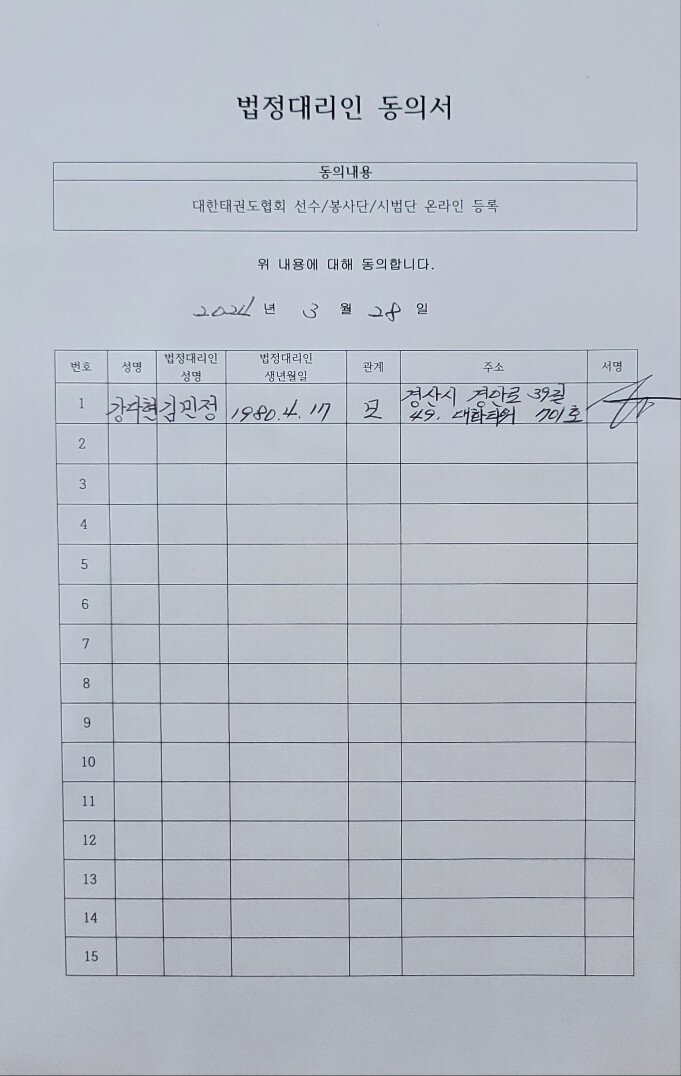 법정대리인 동의서
동의내용
대한태권도협회 선수/봉사단/시범단 온라인 등록
위 내용에 대해 동의합니다.
2024 년 3 월 28 일
번호 성명 법정대리인 성명 법정대리인 생년월일 관계 주소 서명
1 강다현 김민정 1980.4.17 모 경산시 경안로 39길
49. 대학타워 701호
2
3
4
5
6
7
8
9
10
11
12
13
14
15